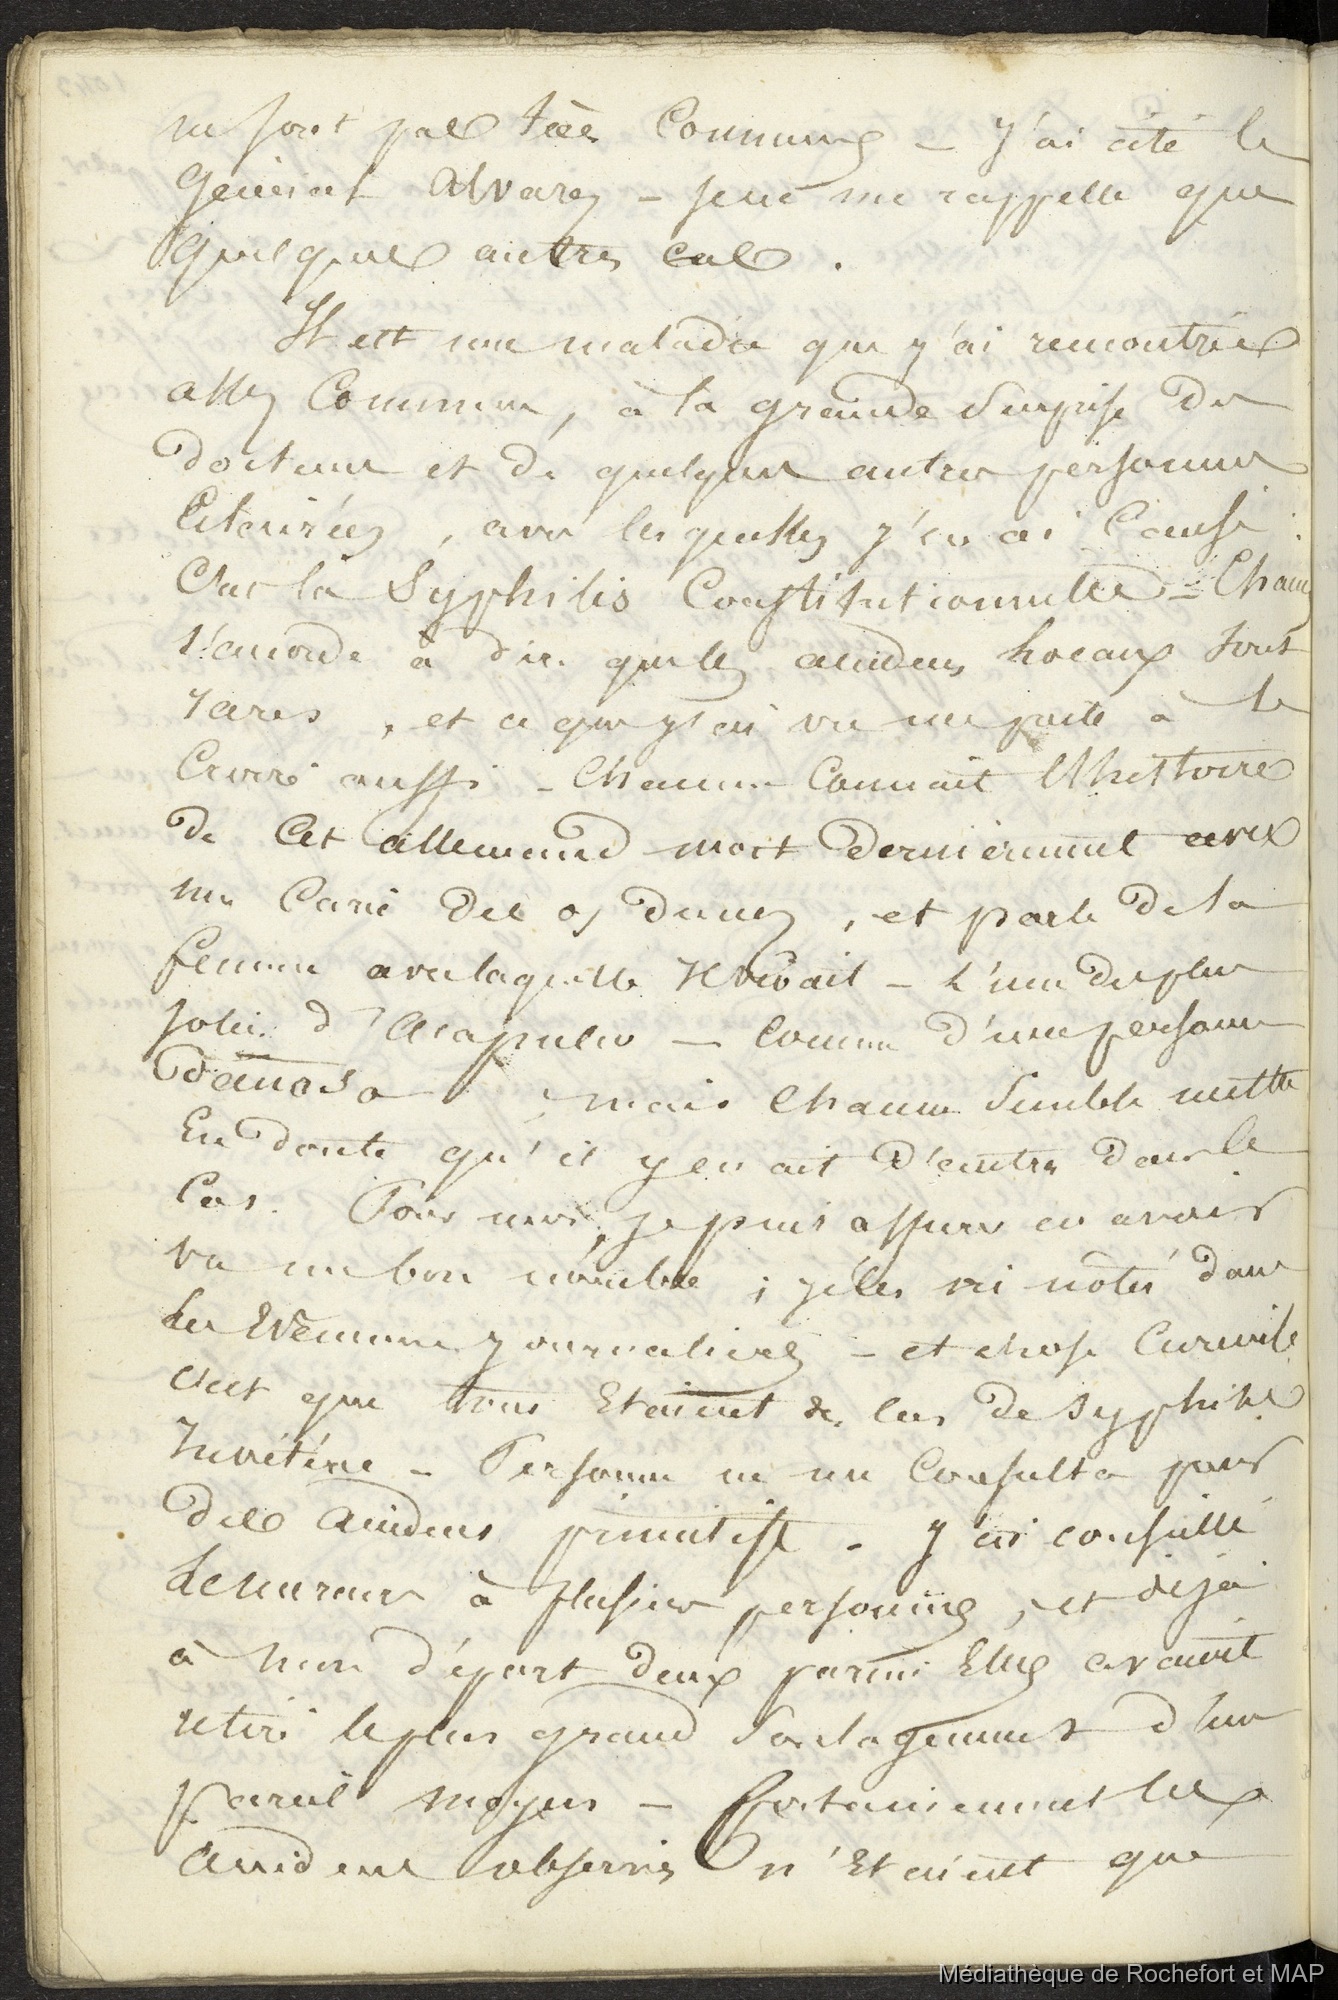 ne sont pas très Communes - J'ai cité le
Général Alvarez - je ne me rappelle que
quelques autres cas.
Il est une maladie que j'ai rencontrée
assez Commune, à la grande Surprise des
docteurs et de quelques autres personnes
Eclairées, avec lesquelles j'en ai Causé :
C'est la Syphilis Constitutionnelle - Chacun
s'accorde à dire que les accidens locaux sont
rares, et ce que j'ai vu me porte à le
Croire aussi - Chacun Connait l'histoire
de Cet allemand mort dernièrement avec
une Carie des os du nez, et parle de la
femme avec laquelle il vivait - L'une des plus
jolies d'Acapulco - Comme d'une personne
dañosa ; mais Chacun Semble mettre
En doute qu'il y en ait d'autres dans le
Cas. Pour moi, je puis assurer en avoir
vu un bon nombre ; je les ai notés dans
les Evénemens journaliers - et chose Curieuse
C'est que tous Etaient des cas de Syphilis
Invétérée - Personne ne me Consulta pour
des accidens primitifs - J'ai conseillé
le mercure à plusieurs personnes, et déjà
à mon départ deux parmi Elles avaient
retiré le plus grand Soulagement d'un
pareil moyen - Certainement les
accidens observés n'Etaient que
Médiathèque de Rochefort et MAP